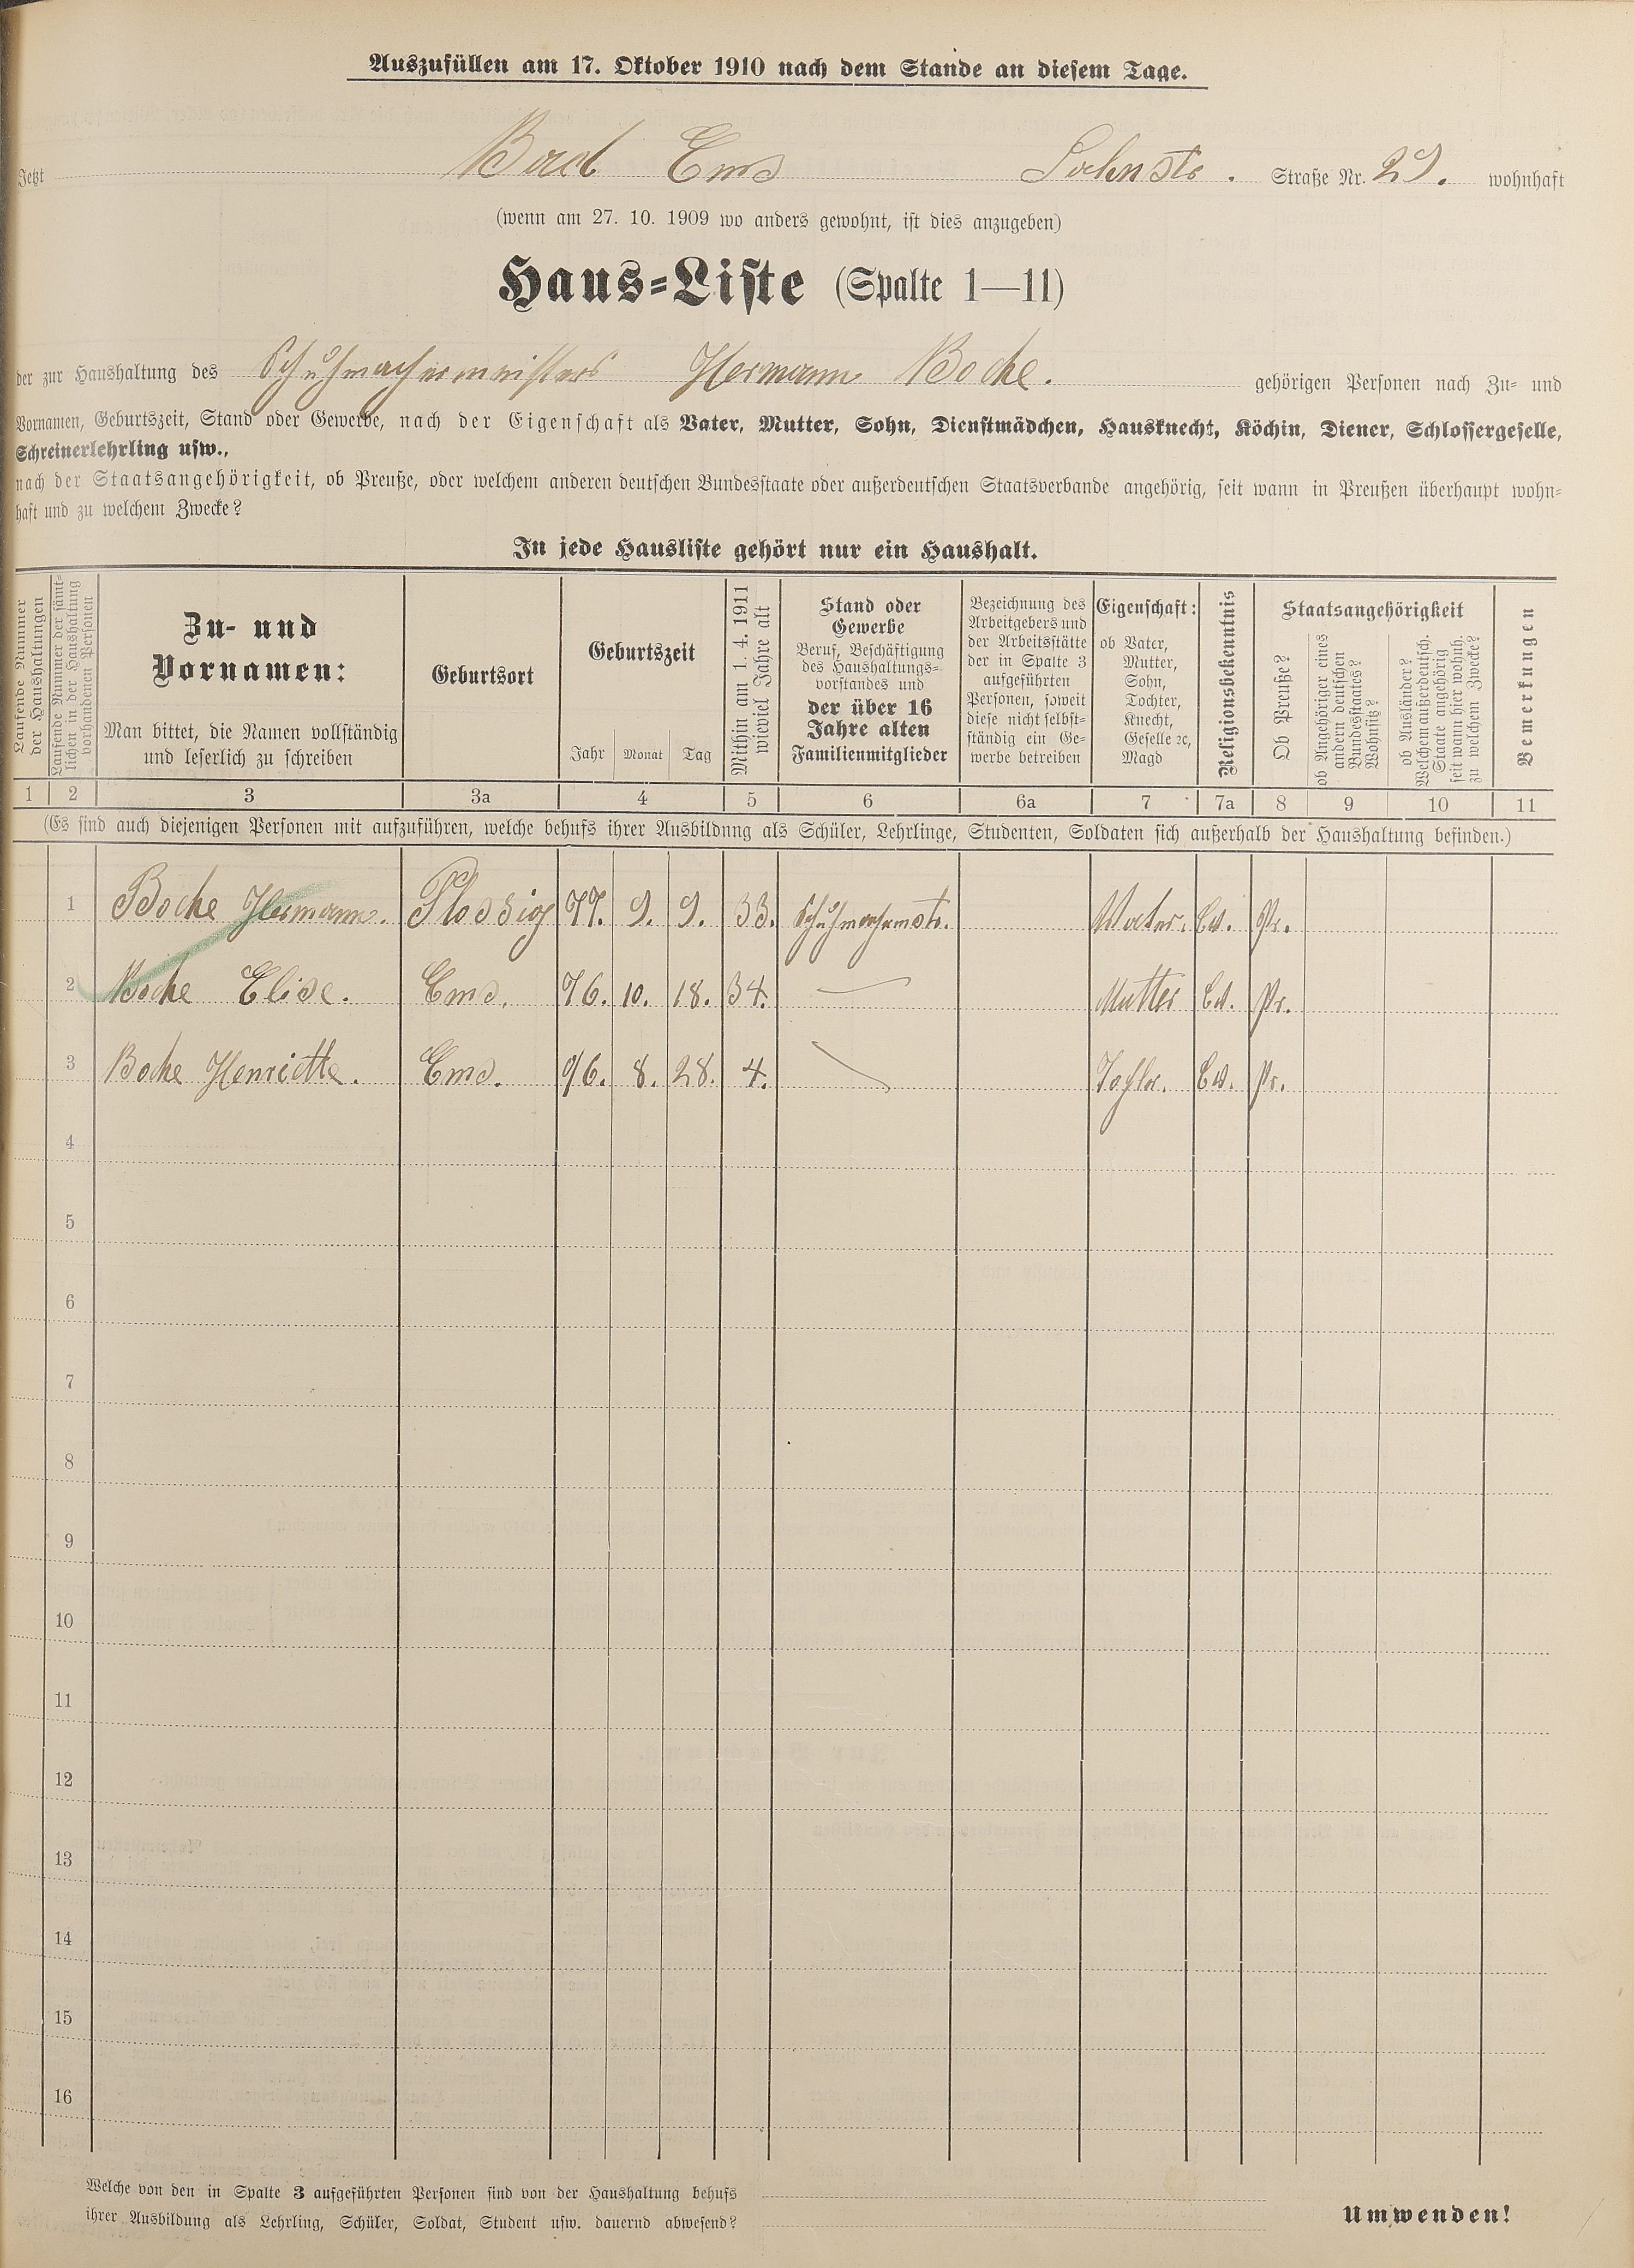 Auszufüllen am 17. Oktober 1910 nach dem Stande an diesem Tage.
Jetzt Bad Ems Lahnstr. Straße Nr. 29. wohnhaft
(wenn am 27. 10. 1909 wo anders gewohnt, ist dies anzugeben)
Haus-Liste (Spalte 1—11)
der zur Haushaltung des Schuhmachermeisters Hermann Boche. gehörigen Personen nach Zu- und
Vornamen, Geburtszeit, Stand oder Gewerbe, nach der Eigenschaft als Vater, Mutter, Sohn, Dienstmädchen, Hausknecht, Köchin, Diener, Schlossergeselle,
Schreinerlehrling usw.,
nach der Staatsangehörigkeit, ob Preuße, oder welchem anderen deutschen Bundesstaate oder außerdeutschen Staatsverbande angehörig, seit wann in Preußen überhaupt wohn-
haft und zu welchem Zwecke?
In jede Hausliste gehört nur ein Haushalt.
Laufende Nummer
der Haushaltungen
Laufende Nummer der sämt-
lichen in der Haushaltung
vorhandenen Personen
Zu- und
Vornamen:
Man bittet, die Namen vollständig
und leserlich zu schreiben
Geburtsort
Geburtszeit
Jahr Monat Tag
Mithin am 1. 4. 1911
wieviel Jahre alt
Stand oder
Gewerbe
Beruf, Beschäftigung
des Haushaltungs-
vorstandes und
der über 16
Jahre alten
Familienmitglieder
Bezeichnung des
Arbeitgebers und
der Arbeitsstätte
der in Spalte 3
aufgeführten
Personen, soweit
diese nicht selbst-
ständig ein Ge-
werbe betreiben
Eigenschaft:
ob Vater,
Mutter,
Sohn,
Tochter,
Knecht,
Geselle ꝛc,
Magd
Religionsbekenntnis
Staatsangehörigkeit
Ob Preuße?
ob Angehöriger eines
andern deutschen
Bundesstaates?
Wohnsitz?
ob Ausländer?
Welchem außerdeutsch.
Staate angehörig
seit wann hier wohnh.
zu welchem Zwecke?
Bemerkungen
1 2 3 3a 4 5 6 6a 7 7a 8 9 10 11
(Es sind auch diejenigen Personen mit aufzuführen, welche behufs ihrer Ausbildung als Schüler, Lehrlinge, Studenten, Soldaten sich außerhalb der Haushaltung befinden.)
1 Boche Hermann. Plossig 77. 9. 9. 33. Schuhmachermstr. Vater. Ev. Pr.
2 Boche Elise. Ems. 76. 10. 18. 34. Mutter Ev. Pr.
3 Boche Henriette. Ems. 8. 28. 4. Tochter. Ev. Pr.
4
5
6
7
8
9
10
11
12
13
14
15
16
Welche von den in Spalte 3 aufgeführten Personen sind von der Haushaltung behufs
ihrer Ausbildung als Lehrling, Schüler, Soldat, Student usw. dauernd abwesend?
Umwenden!